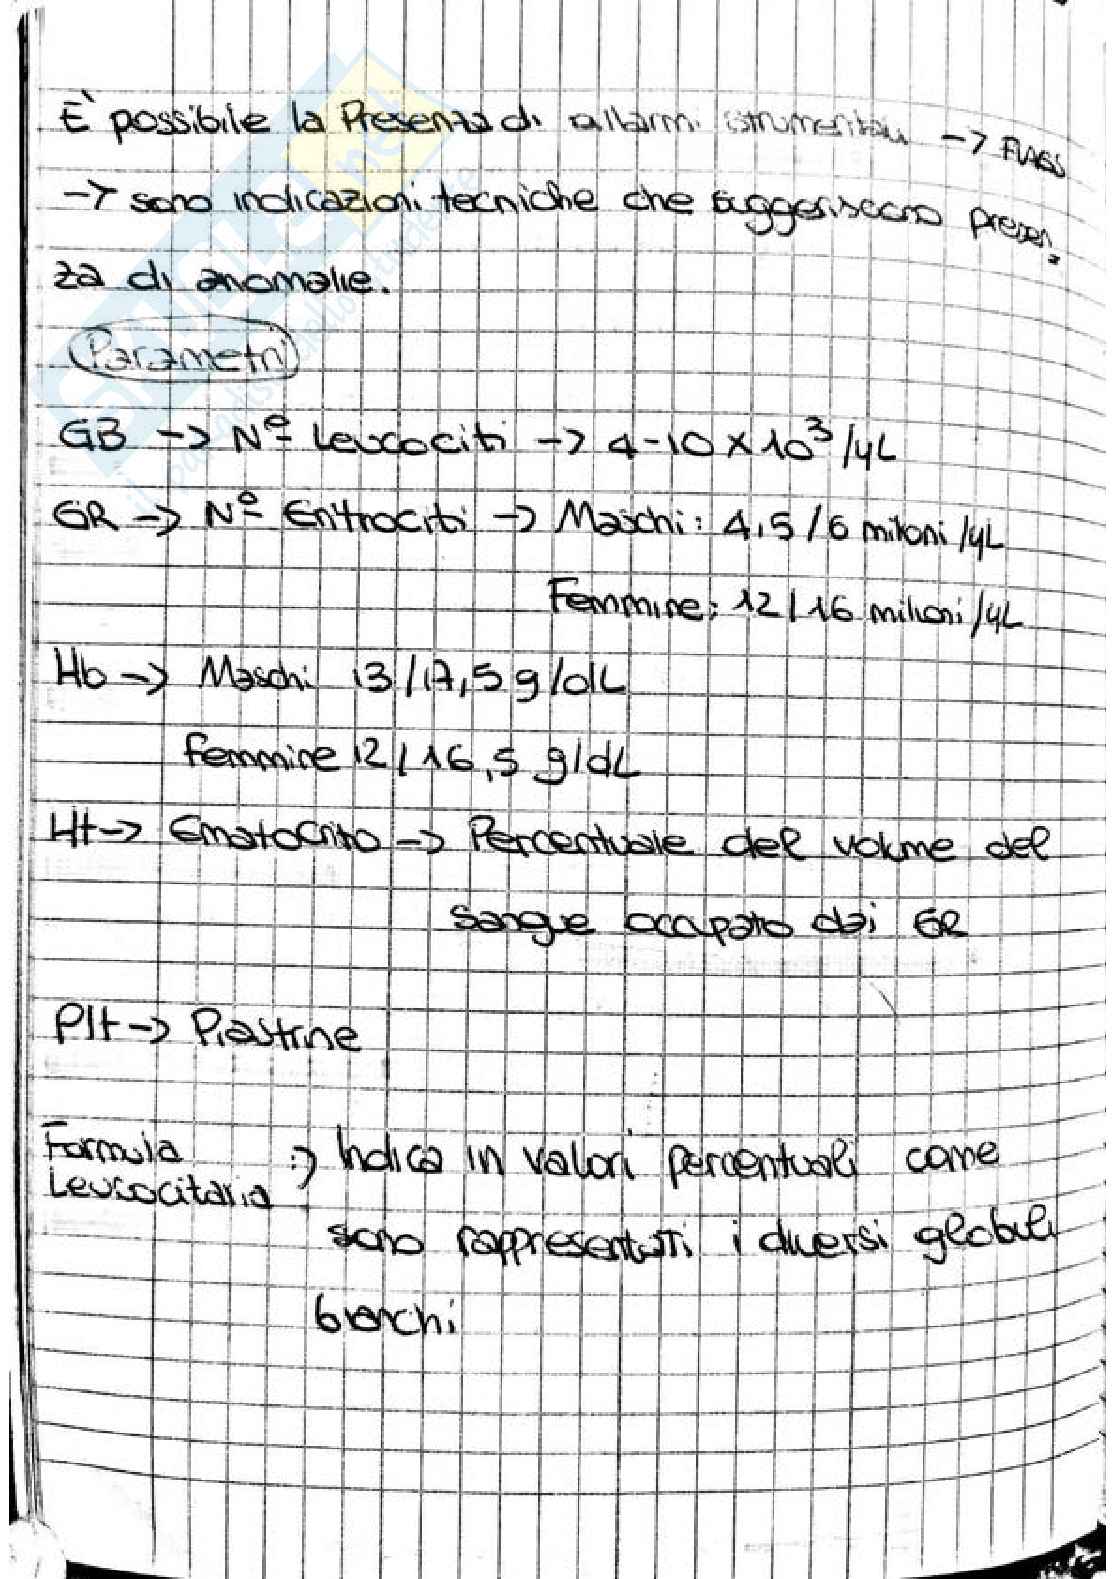 È possibile la Presenza di allarmi strumentali -> FLAGS
-> sono indicazioni tecniche che suggeriscono presen-
za di anomalie.
Parametri
GB -> Nº Leucociti -> 4-10 x 10³/µL
GR -> Nº Eritrociti -> Maschi: 4,5/6 milioni/µL
Femmine: 12/16 milioni/µL
Hb -> Maschi 13/17,5 g/dL
femmine 12/16,5 g/dL
Ht -> Ematocrito -> Percentuale del volume del
sangue occupato dai GR
Plt -> Piastrine
Formula
Leucocitaria :> Indica in valori percentuali come
sono rappresentati i diversi globuli
bianchi